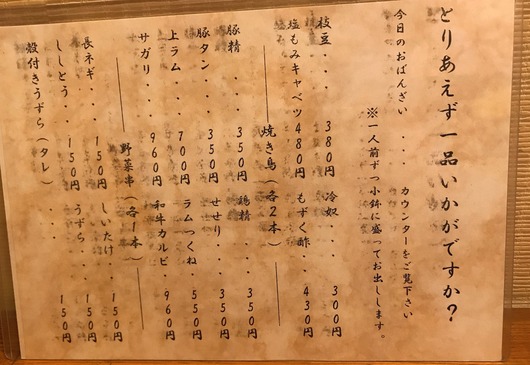 とりあえず一品いかがですか？
今日のおばんざい ・・・ カウンターをご覧下さい
※一人前ずつ小鉢に盛ってお出しします。
枝豆・・・ 380円 冷奴・・・ 300円
塩もみキャベツ 480円 もずく酢・・ 430円
焼き鳥（各2本）
豚精 ・・・ 350円 鶏精 ・・・ 350円
豚タン・・・ 350円 せせり・・・ 350円
上ラム・・・ 700円 ラムつくね・ 550円
サガリ・・・ 960円 和牛カルビ・ 960円
野菜串（各1本）
長ネギ・・・ 150円 しいたけ・・ 150円
ししとう・・ 150円 うずら・・・ 150円
殻付きうずら（タレ）・・・・ 150円